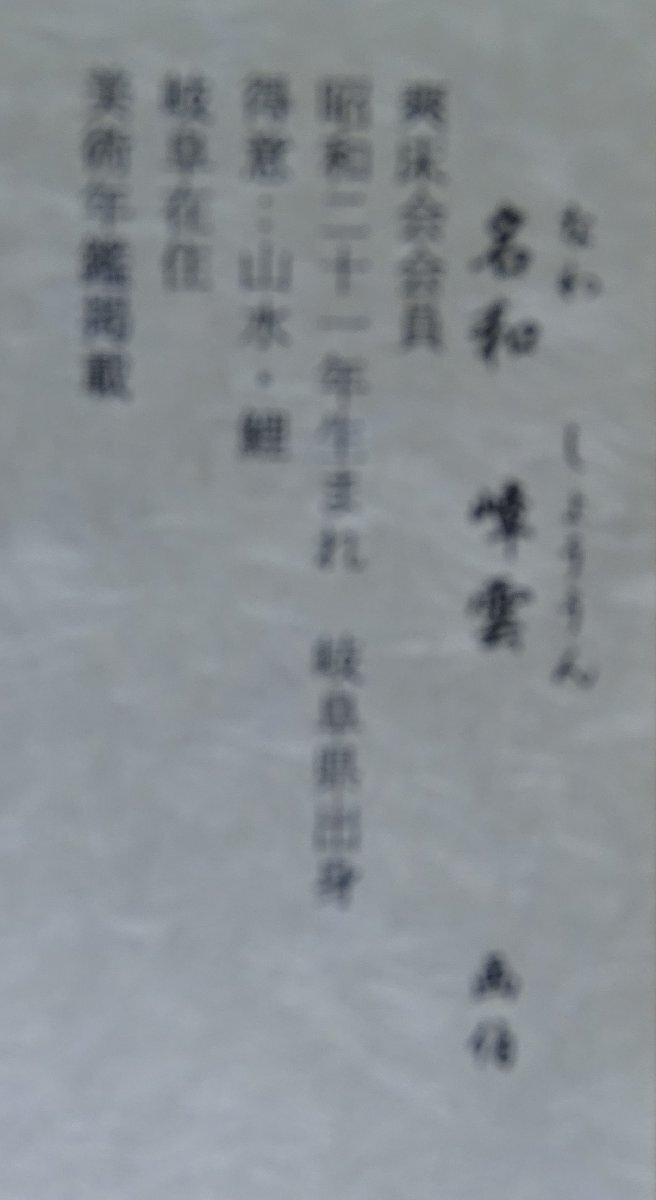 なわ しょううん
名和 峰雲 画伯
爽沃会会員
昭和二十一年生まれ 岐阜県出身
得意:山水・鯉
岐阜在住
美術年鑑掲載